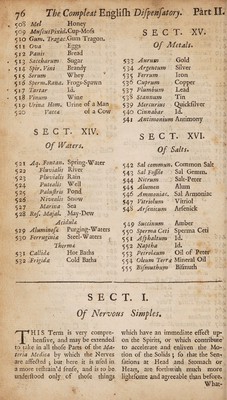 76 The Compleat English Dispensatory. Part II.
508 Mel Honey
509 MuscusPixid. Cup-Moss
510 Gum. Tragac. Gum Tragan.
511 Ova Eggs
512 Panis Bread
513 Saccharum Sugar
514 Spir. Vini Brandy
515 Serum Whey
516 Sperm. Rana. Frogs-Spawn
517 Tartar Id.
518 Vinum Wine
519 Urina Hom. Urine of a Man
520 Vacca of a Cow
SECT. XIV.
Of Waters.
521 Aq. Fontan. Spring-Water
522 Fluvialis River
523 Pluvialis Rain
524 Puteals Well
525 Palustris Pond
526 Nivealis Snow
527 Marina Sea
528 Ros. Majal. May-Dew
Acidula
529 Aluminosa Purging-Waters
530 Ferruginea Steel-Waters
Therma
531 Callida Hot Baths
532 Frigida Cold Baths
SECT. XV.
Of Metals.
533 Aurum Gold
534 Argentum Silver
535 Ferrum Iron
536 Cuprum Copper
537 Plumbum Lead
538 Stannum Tin
539 Mercurius Quicksilver
540 Cinnabar Id.
541 Antimonium Antimony
SECT. XVI.
Of Salts.
542 Sal commun. Common Salt
543 Sal Fossile Sal Gemm.
544 Nitrum Salt-Peter
545 Alumen Alum
546 Ammoniac. Sal Armoniac
547 Vitriolum Vitriol
548 Arsenicum Arsenick
549 Succinum Amber
550 Sperma Ceti Sperma Ceti
551 Asphaltum Id.
552 Naptha Id.
553 Petroleum Oil of Peter
554 Oleum Terra Mineral Oil
555 Bismuthum Bismuth
SECT. I.
Of Nervous Simples.
THIS Term is very compre-
hensive, and may be extended
to take in all those Parts of the Ma-
teria Medica by which the Nerves
are affected; but here it is used in
a more restrain'd sense, and is to be
understood only of those things
which have an immediate effect up-
on the Spirits, or which contribute
to accelerate and enliven the Mo-
tion of the Solids; so that the Sen-
sations at Head and Stomach or
Heart, are forthwith much more
lightsome and agreeable than before.
What-